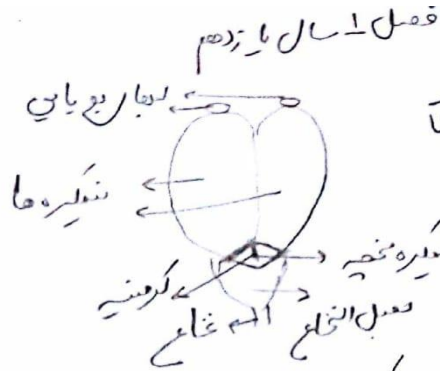 فصل ۱ سال یازدهم
لبهای بویایی
نیمکره ها
نیمکره مخچه
کرمینه
بصل النخاع